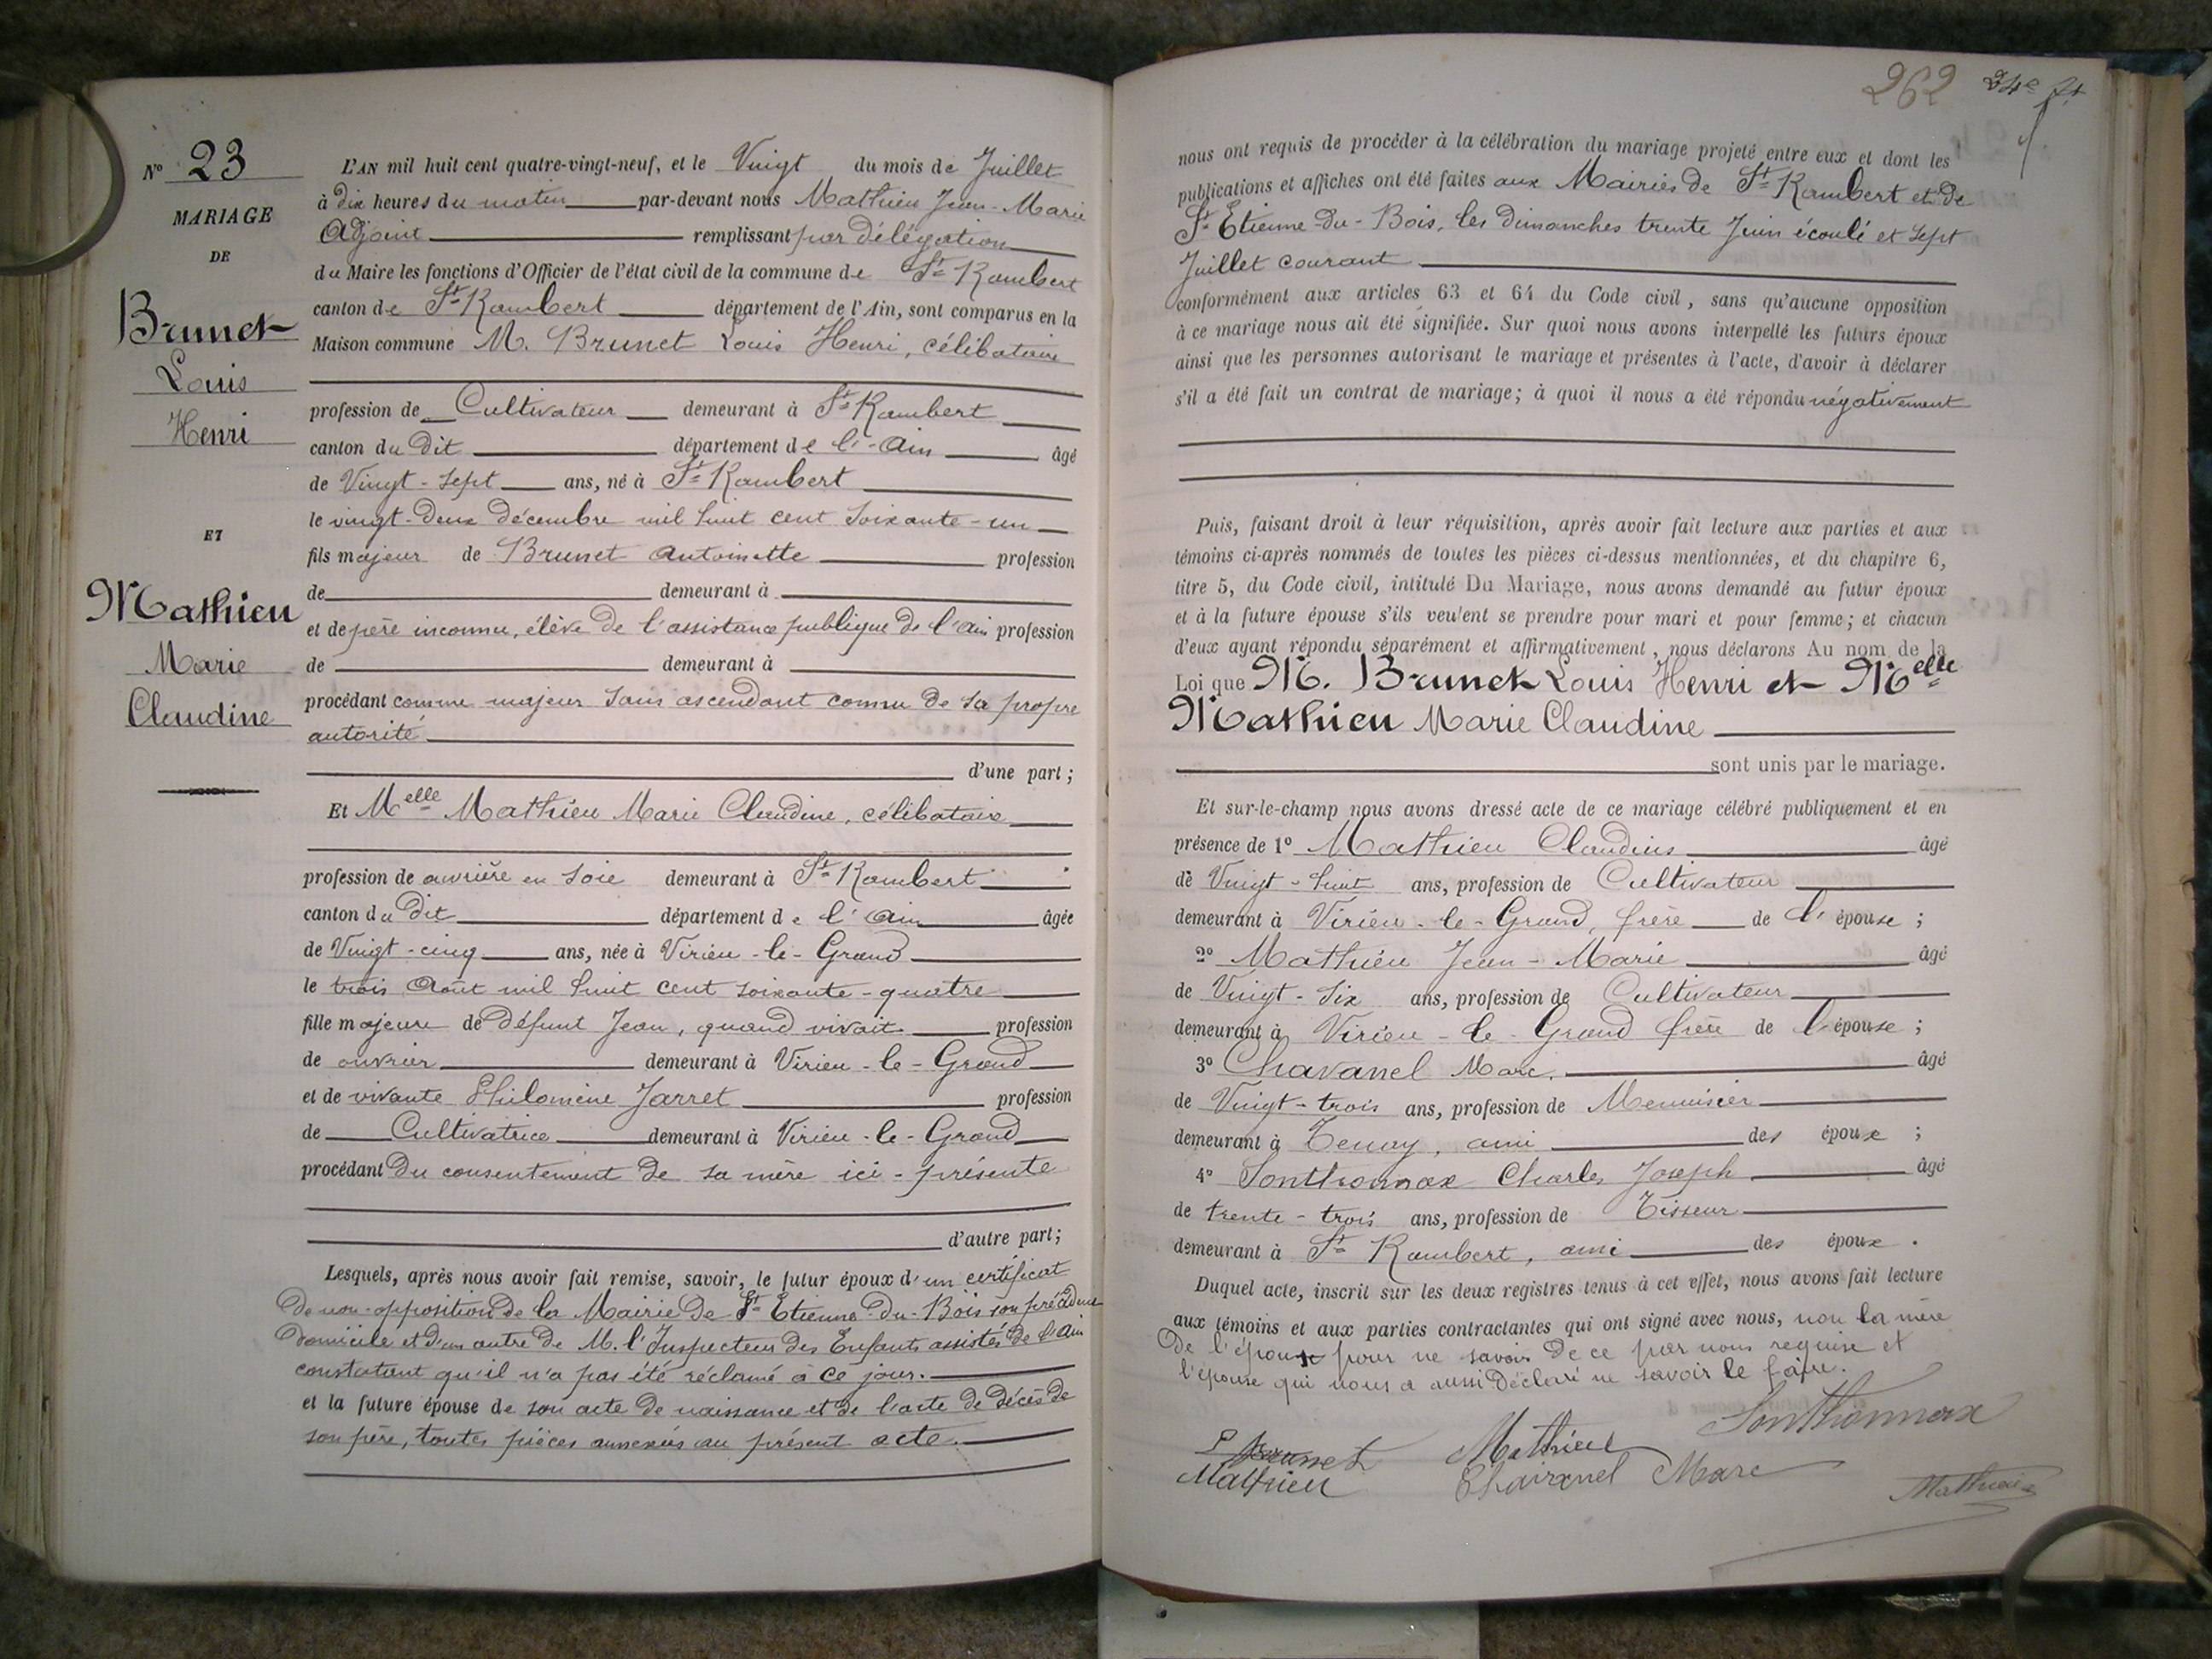 N° 23
MARIAGE
DE
Brunet
Louis
Henri
ET
Mathieu
Marie
Claudine
L'AN mil huit cent quatre-vingt-neuf, et le Vingt du mois de Juillet
à dix heures du matin par-devant nous Mathieu Jean-Marie
Adjoint remplissant par délégation
du Maire les fonctions d'Officier de l'état civil de la commune de St Rambert
canton de St Rambert département de l'Ain, sont comparus en la
Maison commune M. Brunet Louis Henri, célibataire
profession de Cultivateur demeurant à St Rambert
canton du dit département de l'Ain âgé
de Vingt-sept ans, né à St Rambert
le vingt-deux décembre mil huit cent soixante-un
fils majeur de Brunet Antoinette profession
de demeurant à
et de père inconnu, élève de l'assistance publique de l'ain profession
de demeurant à
procédant comme majeur sans ascendant connu de sa propre
autorité
d'une part ;
Et Melle Mathieu Marie Claudine, célibataire
profession de ouvrière en soie demeurant à St Rambert
canton du dit département de l'Ain âgée
de Vingt-cinq ans, née à Virieu-le-Grand
le trois Août mil huit cent soixante-quatre
fille majeure de défunt Jean, quand vivait profession
de ouvrier demeurant à Virieu-le-Grand
et de vivante Philomène Jarret profession
de Cultivatrice demeurant à Virieu-le-Grand
procédant du consentement de sa mère ici-présente
d'autre part ;
Lesquels, après nous avoir fait remise, savoir, le futur époux d'un certificat
de non-opposition de la Mairie de St Etienne-du-Bois son précédent
domicile et d'un autre de M. l'Inspecteur des Enfants assistés de l'Ain
constatant qu'il n'a pas été réclamé à ce jour.
et la future épouse de son acte de naissance et de l'acte de décès de
son père, toutes pièces annexées au présent acte.
262 24e ft
nous ont requis de procéder à la célébration du mariage projeté entre eux et dont les
publications et affiches ont été faites aux Mairies de St Rambert et de
St Etienne-du-Bois, les dimanches trente Juin écoulé et sept
Juillet courant
conformément aux articles 63 et 64 du Code civil, sans qu'aucune opposition
à ce mariage nous ait été signifiée. Sur quoi nous avons interpellé les futurs époux
ainsi que les personnes autorisant le mariage et présentes à l'acte, d'avoir à déclarer
s'il a été fait un contrat de mariage ; à quoi il nous a été répondu négativement
Puis, faisant droit à leur réquisition, après avoir fait lecture aux parties et aux
témoins ci-après nommés de toutes les pièces ci-dessus mentionnées, et du chapitre 6,
titre 5, du Code civil, intitulé Du Mariage, nous avons demandé au futur époux
et à la future épouse s'ils veulent se prendre pour mari et pour femme ; et chacun
d'eux ayant répondu séparément et affirmativement, nous déclarons Au nom de la
Loi que M. Brunet Louis Henri et Melle
Mathieu Marie Claudine
sont unis par le mariage.
Et sur-le-champ nous avons dressé acte de ce mariage célébré publiquement et en
présence de 1° Mathieu Claudius âgé
de Vingt-huit ans, profession de Cultivateur
demeurant à Virieu-le-Grand, frère de l'épouse ;
2° Mathieu Jean-Marie âgé
de Vingt-six ans, profession de Cultivateur
demeurant à Virieu-le-Grand frère de l'épouse ;
3° Chavanel Marc. âgé
de Vingt-trois ans, profession de Menuisier
demeurant à Tenay, ami des époux ;
4° Sonthonnax Charles Joseph âgé
de trente-trois ans, profession de Tisseur
demeurant à St Rambert, ami des époux.
Duquel acte, inscrit sur les deux registres tenus à cet effet, nous avons fait lecture
aux témoins et aux parties contractantes qui ont signé avec nous, non la mère
de l'épouse pour ne savoir de ce par nous requise et
l'épouse qui nous a aussi déclaré ne savoir le faire.
Brunet Mathieu Sonthonnax
Mathieu Chavanel Marc Mathieu